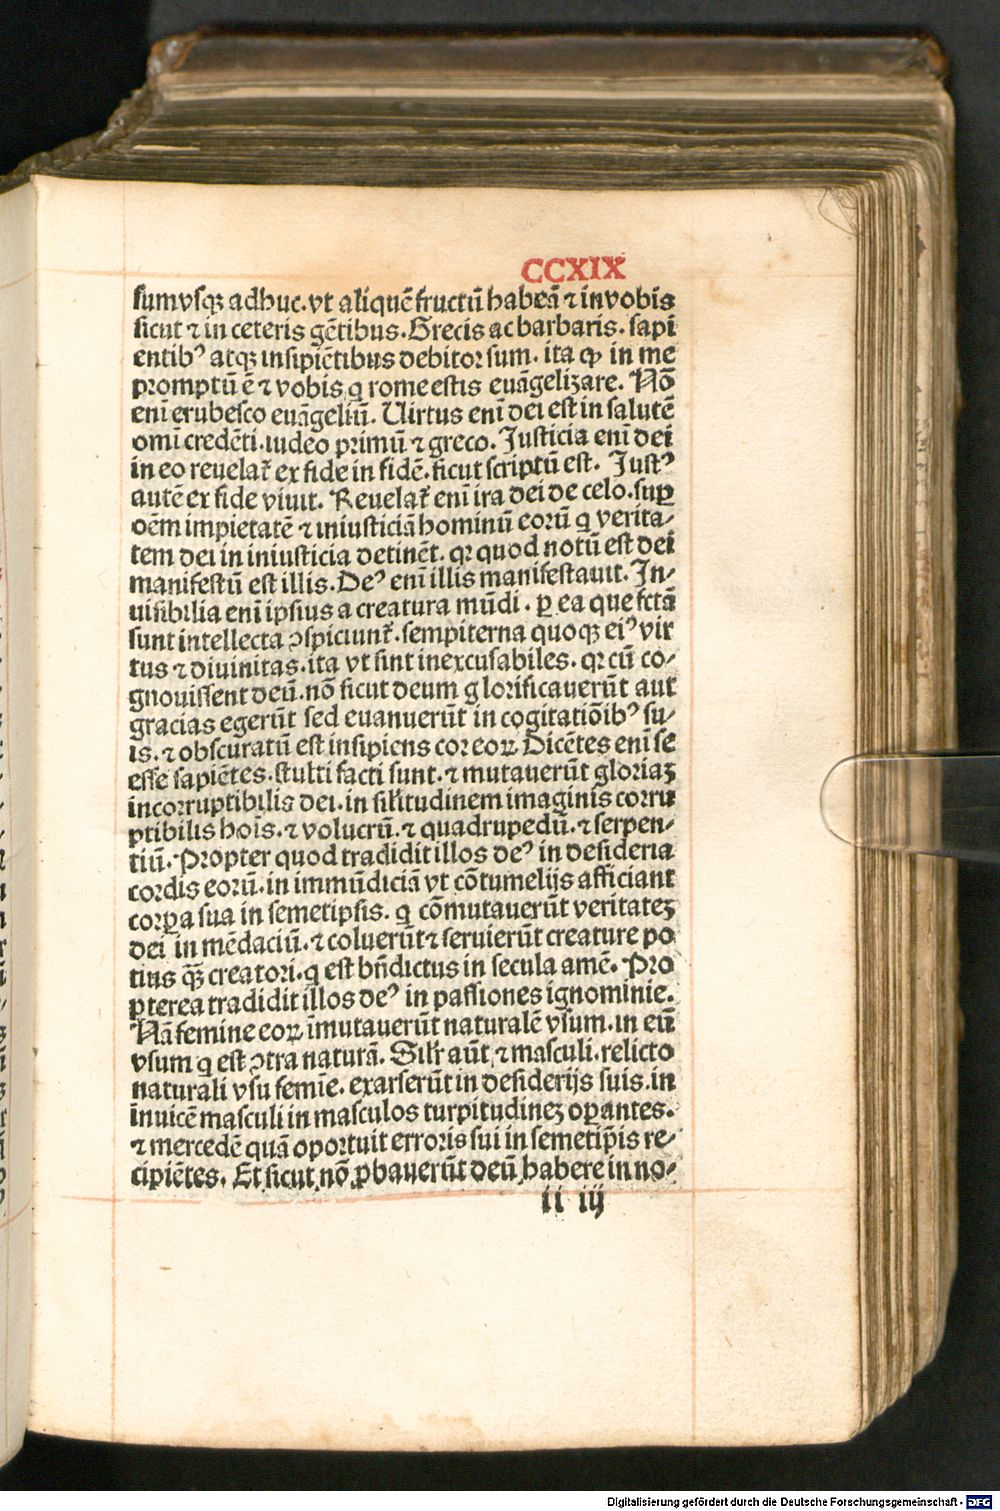 CCXIX
sumvsqꝫ adhuc. vt aliquē fructū habeā ⁊ in vobis
sicut ⁊ in ceteris gētibus. Grecis ac barbaris. sapi
entibꝰ atqꝫ insipiētibus debitor sum. ita ꝙ in me
promptū ē ⁊ vobis q rome estis euāgelizare. Nō
enī erubesco euāgeliū. Uirtus enī dei est in salutē
omī credēti. iudeo primū ⁊ greco. Justicia enī dei
in eo reuelat᷑ ex fide in fidē. sicut scriptū est. Justꝰ
autē ex fide viuit. Reuelat᷑ enī ira dei de celo. suꝑ
oēm impietatē ⁊ iniusticiā hominū eorū q verita⸗
tem dei in iniusticia detinēt. qꝛ quod notū est dei
manifestū est illis. Deꝰ enī illis manifestauit. In⸗
uisibilia enī ipsius a creatura mūdi. ꝑ ea que fctā
sunt intellecta ꝯspiciunt᷑. sempiterna quoqꝫ eiꝰ vir
tus ⁊ diuinitas. ita vt sint inexcusabiles. qꝛ cū co⸗
gnouissent deū. nō sicut deum glorificauerūt aut
gracias egerūt sed euanuerūt in cogitatiōibꝰ su⸗
is. ⁊ obscuratū est insipiens cor eoꝝ. Dicētes enī se
esse sapiētes. stulti facti sunt. ⁊ mutauerūt gloriaꝫ
incorruptibilis dei. in sil̄itudinem imaginis corru
ptibilis hoīs. ⁊ volucrū. ⁊ quadrupedū. ⁊ serpen⸗
tiū. Propter quod tradidit illos deꝰ in desideria
cordis eorū. in immūdiciā vt cōtumelijs afficiant
corꝑa sua in semetipsis. q cōmutauerūt veritateꝫ
dei in mēdaciū. ⁊ coluerūt ⁊ seruierūt creature po
tius qꝫ̄ creatori. q est bn̄dictus in secula amē. Pro
pterea tradidit illos deꝰ in passiones ignominie.
Nā femine eoꝝ īmutauerūt naturalē vsum. in eū
vsum q est ꝯtra naturā. Silr̄ aūt ⁊ masculi. relicto
naturali vsu femīe. exarserūt in desiderijs suis. in
inuicē masculi in masculos turpitudineꝫ oꝑantes.
⁊ mercedē quā oportuit erroris sui in semetip̄is re⸗
cipiētes. Et sicut nō ꝓbauerūt deū habere in no⸗
ii iij
Digitalisierung gefördert durch die Deutsche Forschungsgemeinschaft - DFG